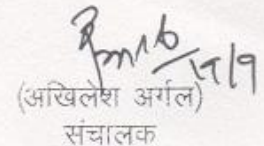 (अखिलेश अर्गल)
संचालक